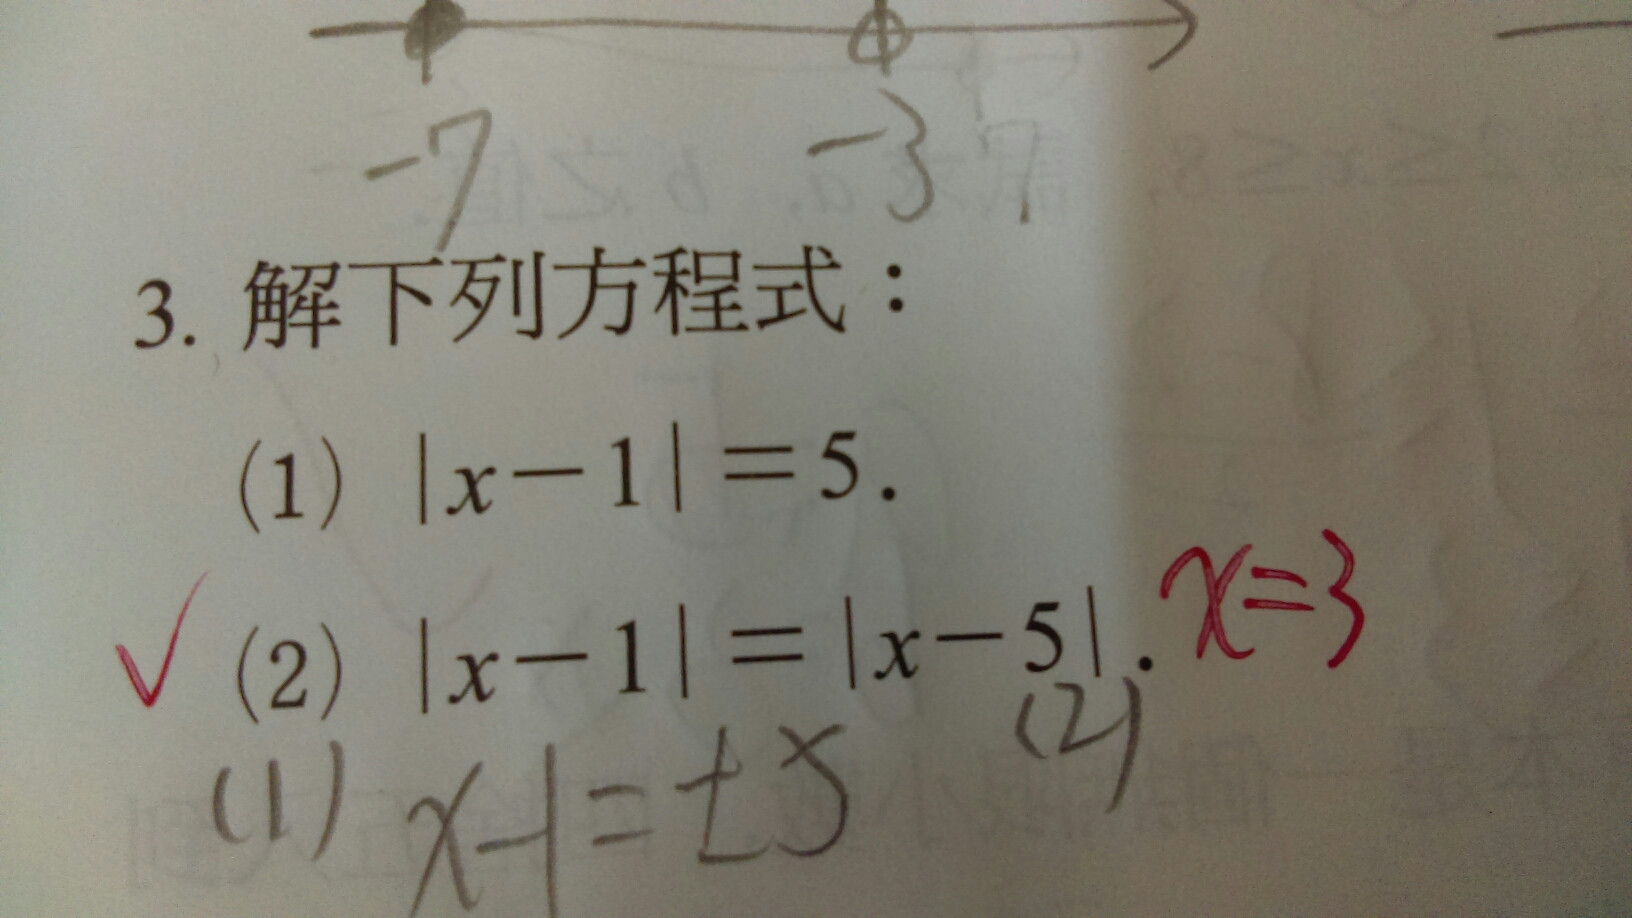 -7 -3
3. 解下列方程式：
(1) |x－1|＝5.
(2) |x－1|＝|x－5|. x=3
(2)
(1) x-1=±5